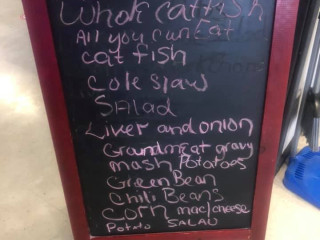 Whole catfish
All you can Eat
cat fish
Cole slaw
SAlad
Liver and onion
Groundmeat gravy
mash Potatoes
Green Bean
Chili Beans
Corn mac/cheese
Potato SALAD